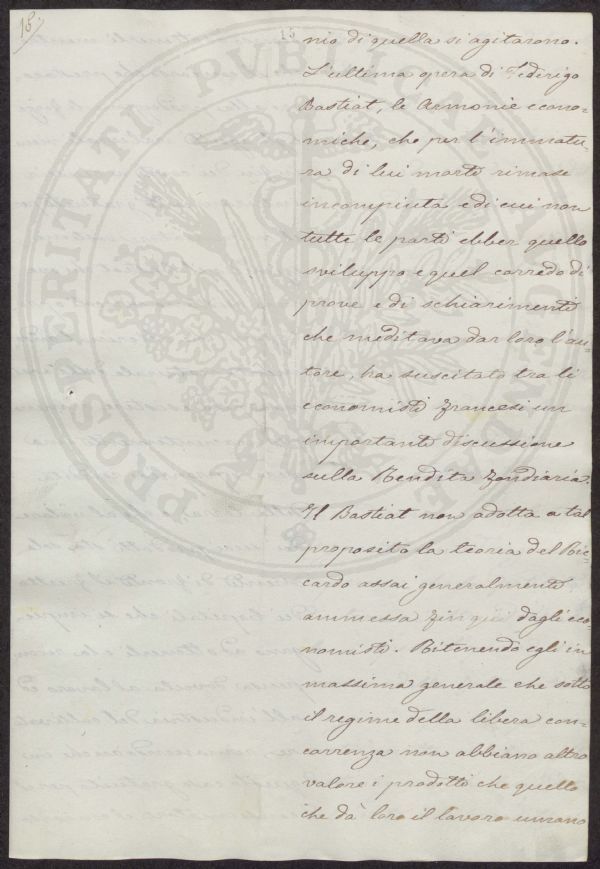 15.
15
nio di quella si agitarono.
L'ultima opera di Federigo
Bastiat, le Armonie econo-
miche, che per l'immatu-
ra di lui morte rimase
incompiuta e di cui non
tutte le parti ebber quello
sviluppo e quel corredo di
prove e di schiarimenti
che meditava dar loro l'au-
tore, ha suscitato tra li
economisti francesi un
importante discussione
sulla Rendita fondiaria.
Il Bastiat non adotta a tal
proposito la teoria del Ric-
cardo assai generalmente
ammessa fin qui dagli eco-
nomisti. Ritenendo egli in
massima generale che sotto
il regime della libera con-
correnza non abbiano altro
valore i prodotti che quello
che dà loro il lavoro umano
PROSPERITATI PVBLICAE